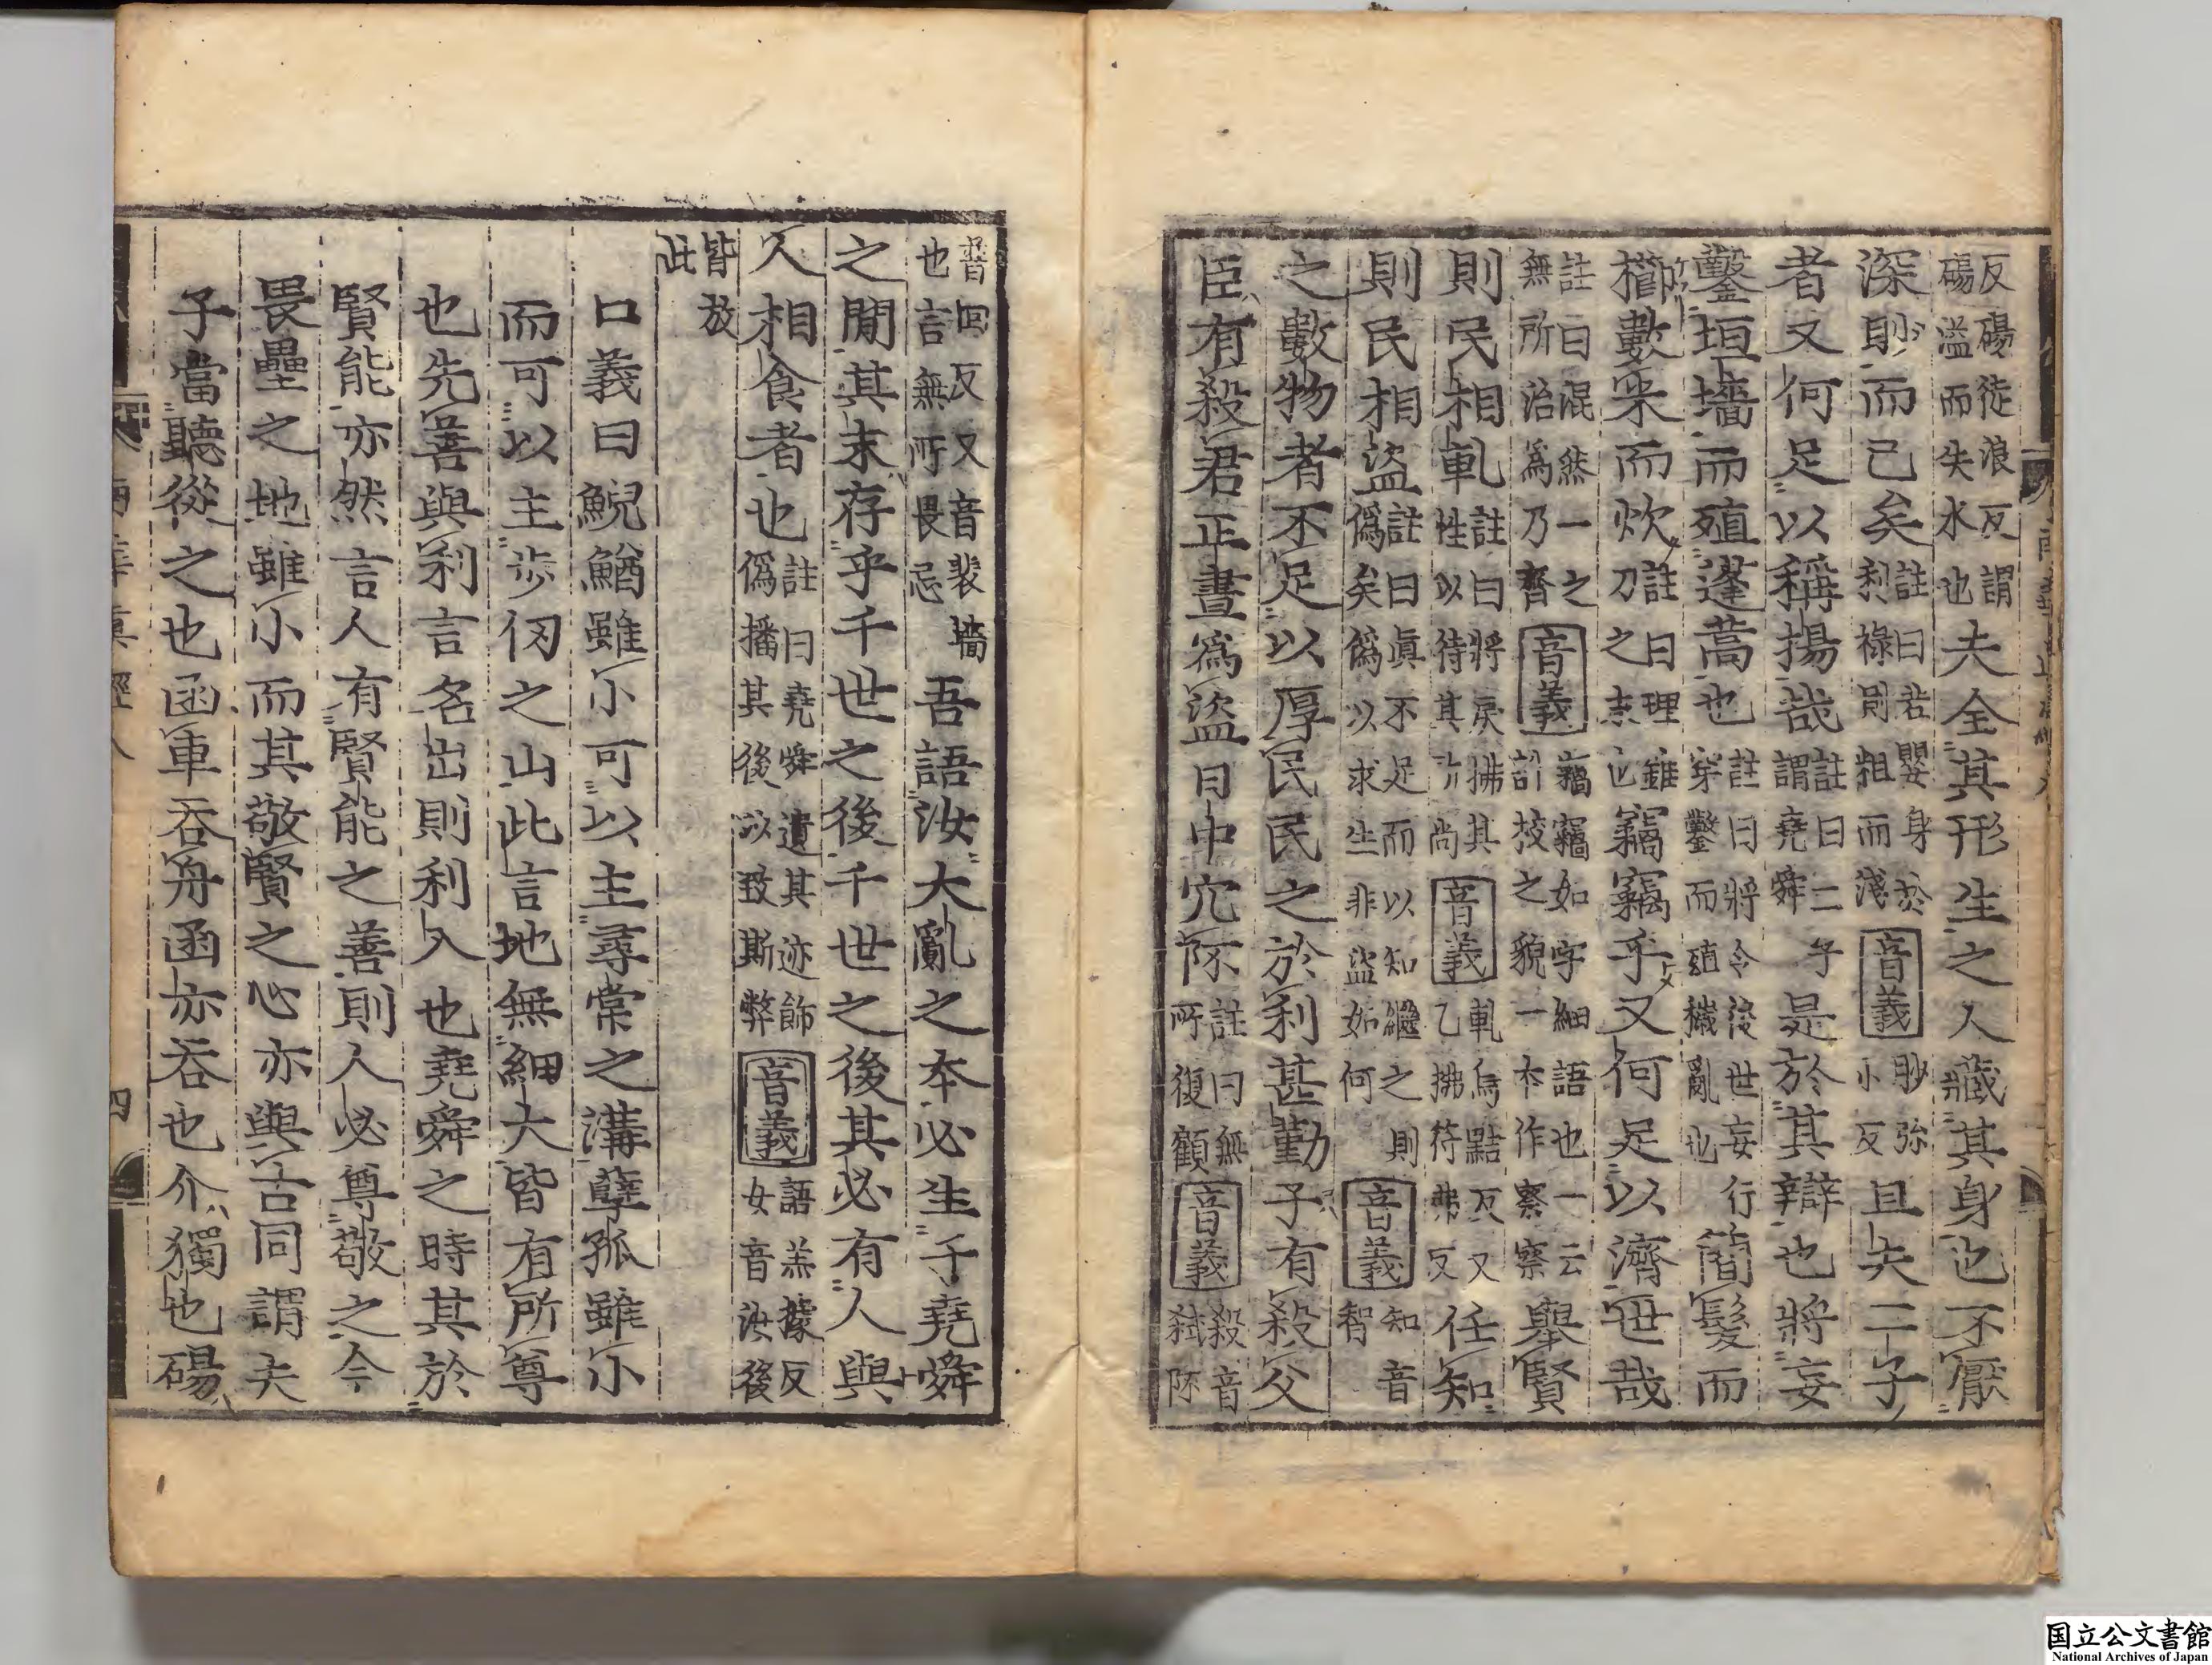 反碭徒浪反謂碭溢而失水也夫全其形生之人藏其身也不厭
深眇而已矣註曰若嬰身於利祿則粗而淺音義眇弥小反且夫二子
者又何足以稱揚哉註曰二子謂堯舜是於其辯也將妄
鑿垣墻而殖蓬蒿也註曰將令後世妄行穿鑿而殖穢亂也簡髮而
櫛數米而炊註曰理錐刀之末也竊竊乎又何足以濟世哉
註曰混然一之無所治爲乃齊音義竊竊如字細語也一云計挍之貌一本作察察舉賢
則民相軋註曰將戾拂其性以待其所尚音義軋烏黠反又乙拂符弗反任知
則民相盜註曰眞不足而以知繼之則僞矣僞以求生非盜如何音義知音智
之數物者不足以厚民民之於利甚勤子有殺父
臣有殺君正晝爲盜日中穴阫註曰無所復顧音義殺音弑阫
普回反又音裴墻也言無所畏忌吾語汝大亂之本必生于堯舜
之閒其末存乎千世之後千世之後其必有人與
人相食者也註曰堯舜遺其迹飾僞播其後以致斯弊音義語羔據反女音汝後
皆放此
口義曰鯢鰌雖小可以主尋常之溝孽狐雖小
而可以主步仞之山此言地無細大皆有所尊
也先善與利言名出則利入也堯舜之時其於
賢能亦然言人有賢能之善則人必尊敬之今
畏壘之地雖小而其敬賢之心亦與古同謂夫
子當聽從之也函車吞舟函亦吞也介獨也碭
国立公文書館
National Archives of Japan